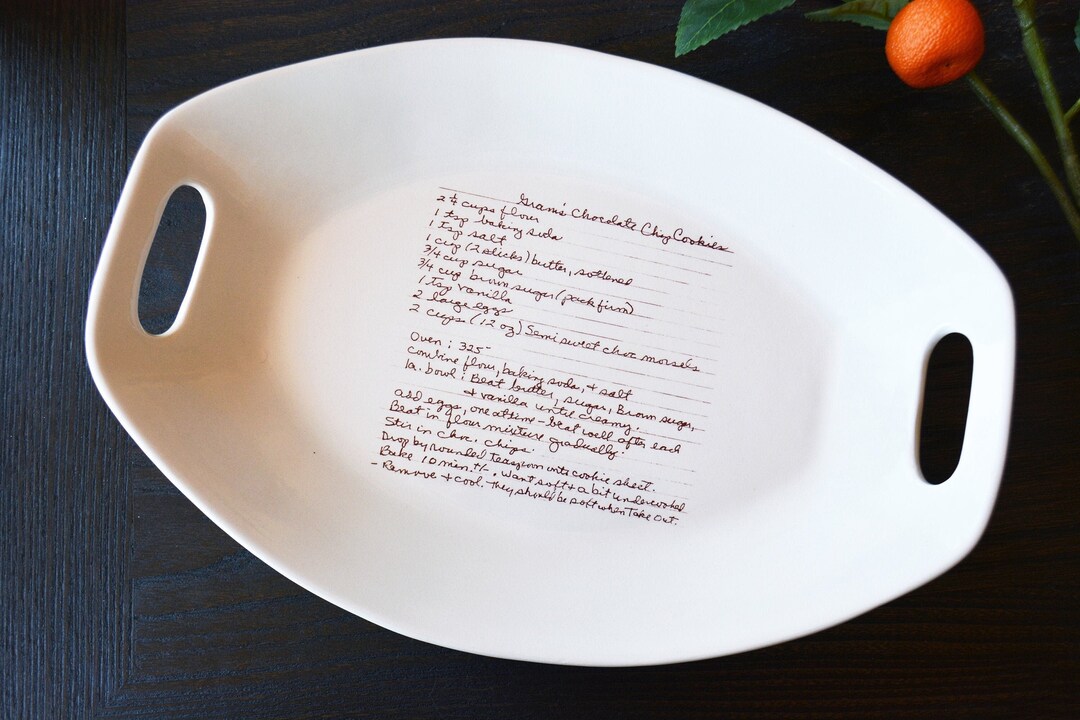 Gram's Chocolate Chip Cookies
2 ¼ cups flour
1 tsp baking soda
1 tsp salt
1 cup (2 sticks) butter, softened
3/4 cup sugar
3/4 cup brown sugar (pack firm)
1 tsp vanilla
2 large eggs
2 cups (12 oz) Semi sweet choc morsels
Oven: 325°
Combine flour, baking soda, + salt
la. bowl: Beat butter, sugar, Brown sugar,
+ vanilla until creamy.
add eggs, one at time - beat well after each
Beat in flour mixture gradually.
Stir in choc. chips.
Drop by rounded teaspoon onto cookie sheet.
Bake 10 min. +/-. Want soft + a bit undercooked
- Remove + cool. They should be soft when Take Out.